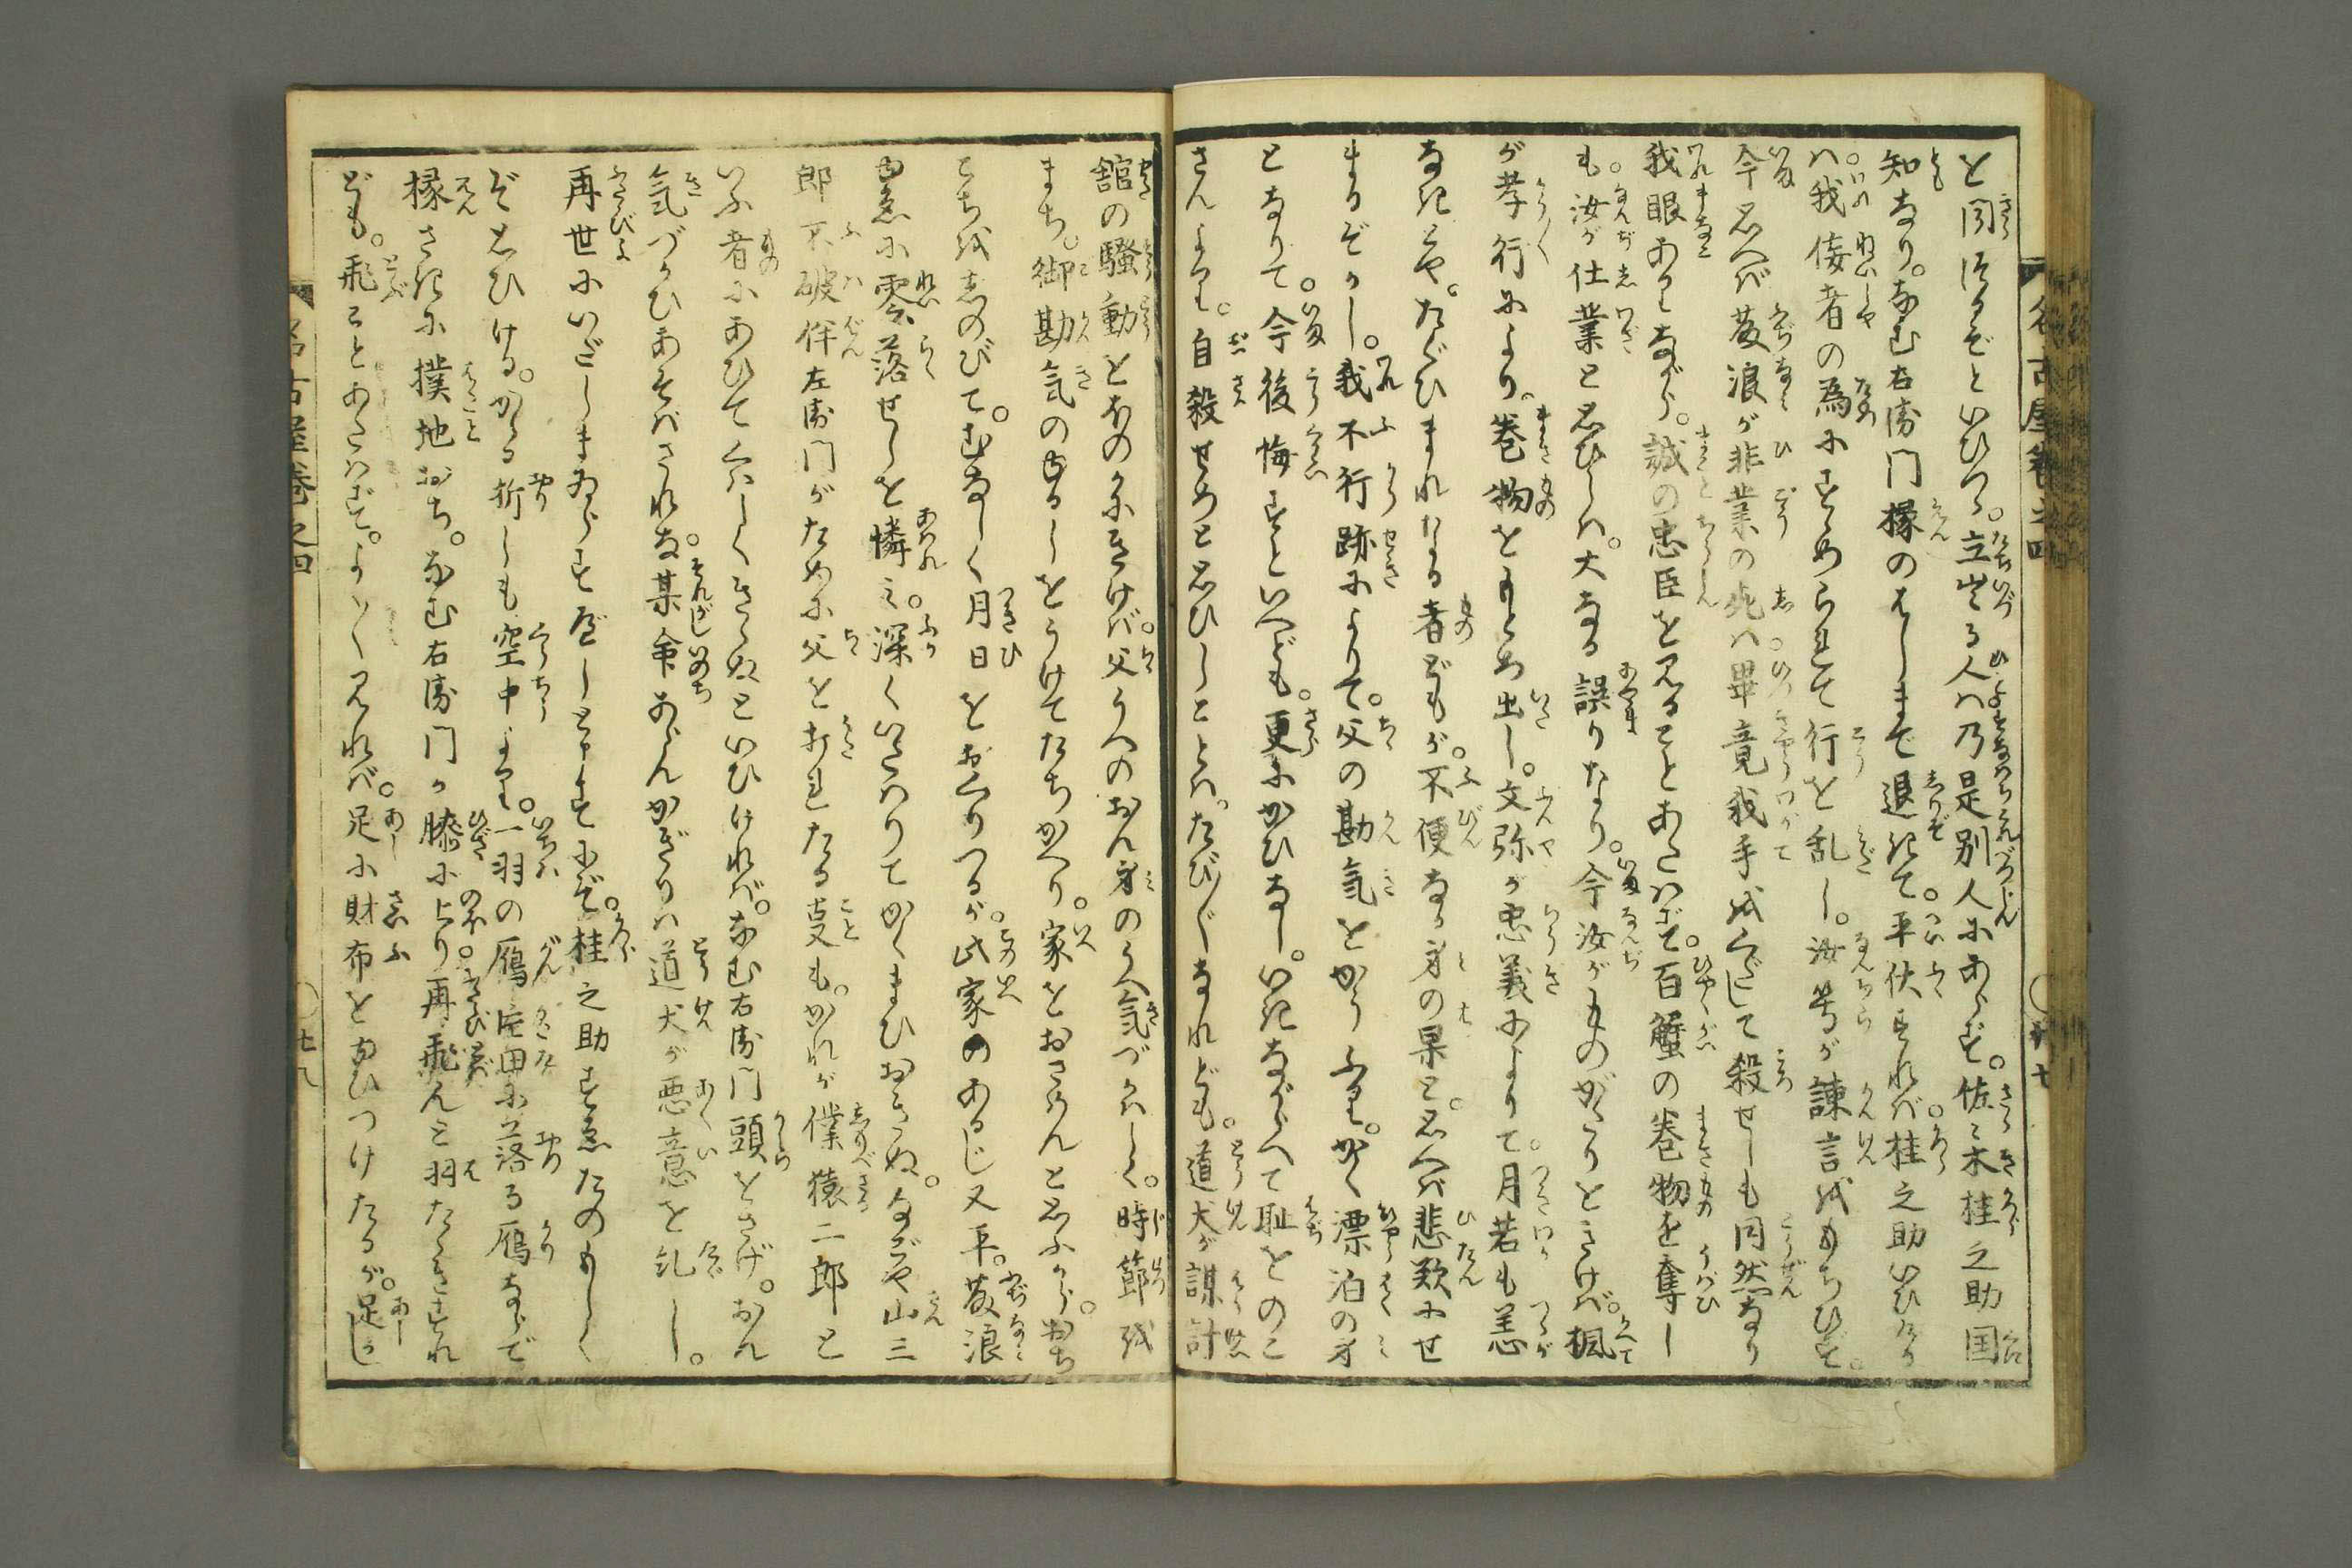 と聞ゆるぞといひつゝ。立出る人は乃是別人にあらず。佐々木桂之助国
知なり。なむ右衛門椽のはしまで退きて。平伏すれば。桂之助いひける
は。我侫者の為にすゝめられて行を乱し。汝等が諫言をもちひず。
今思へば藤浪が非業の死は。畢竟我手をくだして殺せしも同然なり
我眼ありながら。誠の忠臣を見ることあたはず。百蟹の巻物を奪ひし
も。汝が仕業と思ひしは。大なる誤りなり。今汝がものがたりをきけば。楓
が孝行により。巻物をもとめ出し。文弥が忠義によりて。月若も恙
なきとや。たぐひまれなる者どもが。不便なる身の果と。思へば悲歎にせ
まるぞかし。我不行跡によりて。父の勘気をかうふり。かく漂泊の身
となりて。今後悔すといへども。更にかひなし。いきながらへて恥をのこ
さんより。自殺せめと思ひしことは。たび〳〵なれども。道犬が謀計
舘の騒動とほのかにきけば。父うへのおん身のうへ気づかはしく。時節を
まち。御勘気のゆるしをうけてたちかへり。家をおさめんと思ふから。おち
こちをしのびて。むなしく月日をおくりつるが。此家のあるじ又平。藤浪
ゆゑに零落せしを憐み。深くいたはりてかくまひおきぬ。なごや山三
郎不破伴左衛門がために父を打れたる事も。かれが僕猿二郎と
いふ者にあひてくはしくきゝぬといひければ。なむ右衛門頭をさげ。おん
気づかひあそばされな。某命あらんかぎりは道犬が悪意を乱し。
再世にいだしまゐらすべしと申すにぞ。桂之助すゑたのもしく
ぞ思ひける。かゝる折しも空中より。一羽の鴈庭面に落る鴈ならで
椽さきに撲地おち。なむ右衛門が膝に上り再飛んと羽たゝきすれ
ども。飛ことあたはず。よく〳〵見れば。足に財布をゆひつけたるが。足に